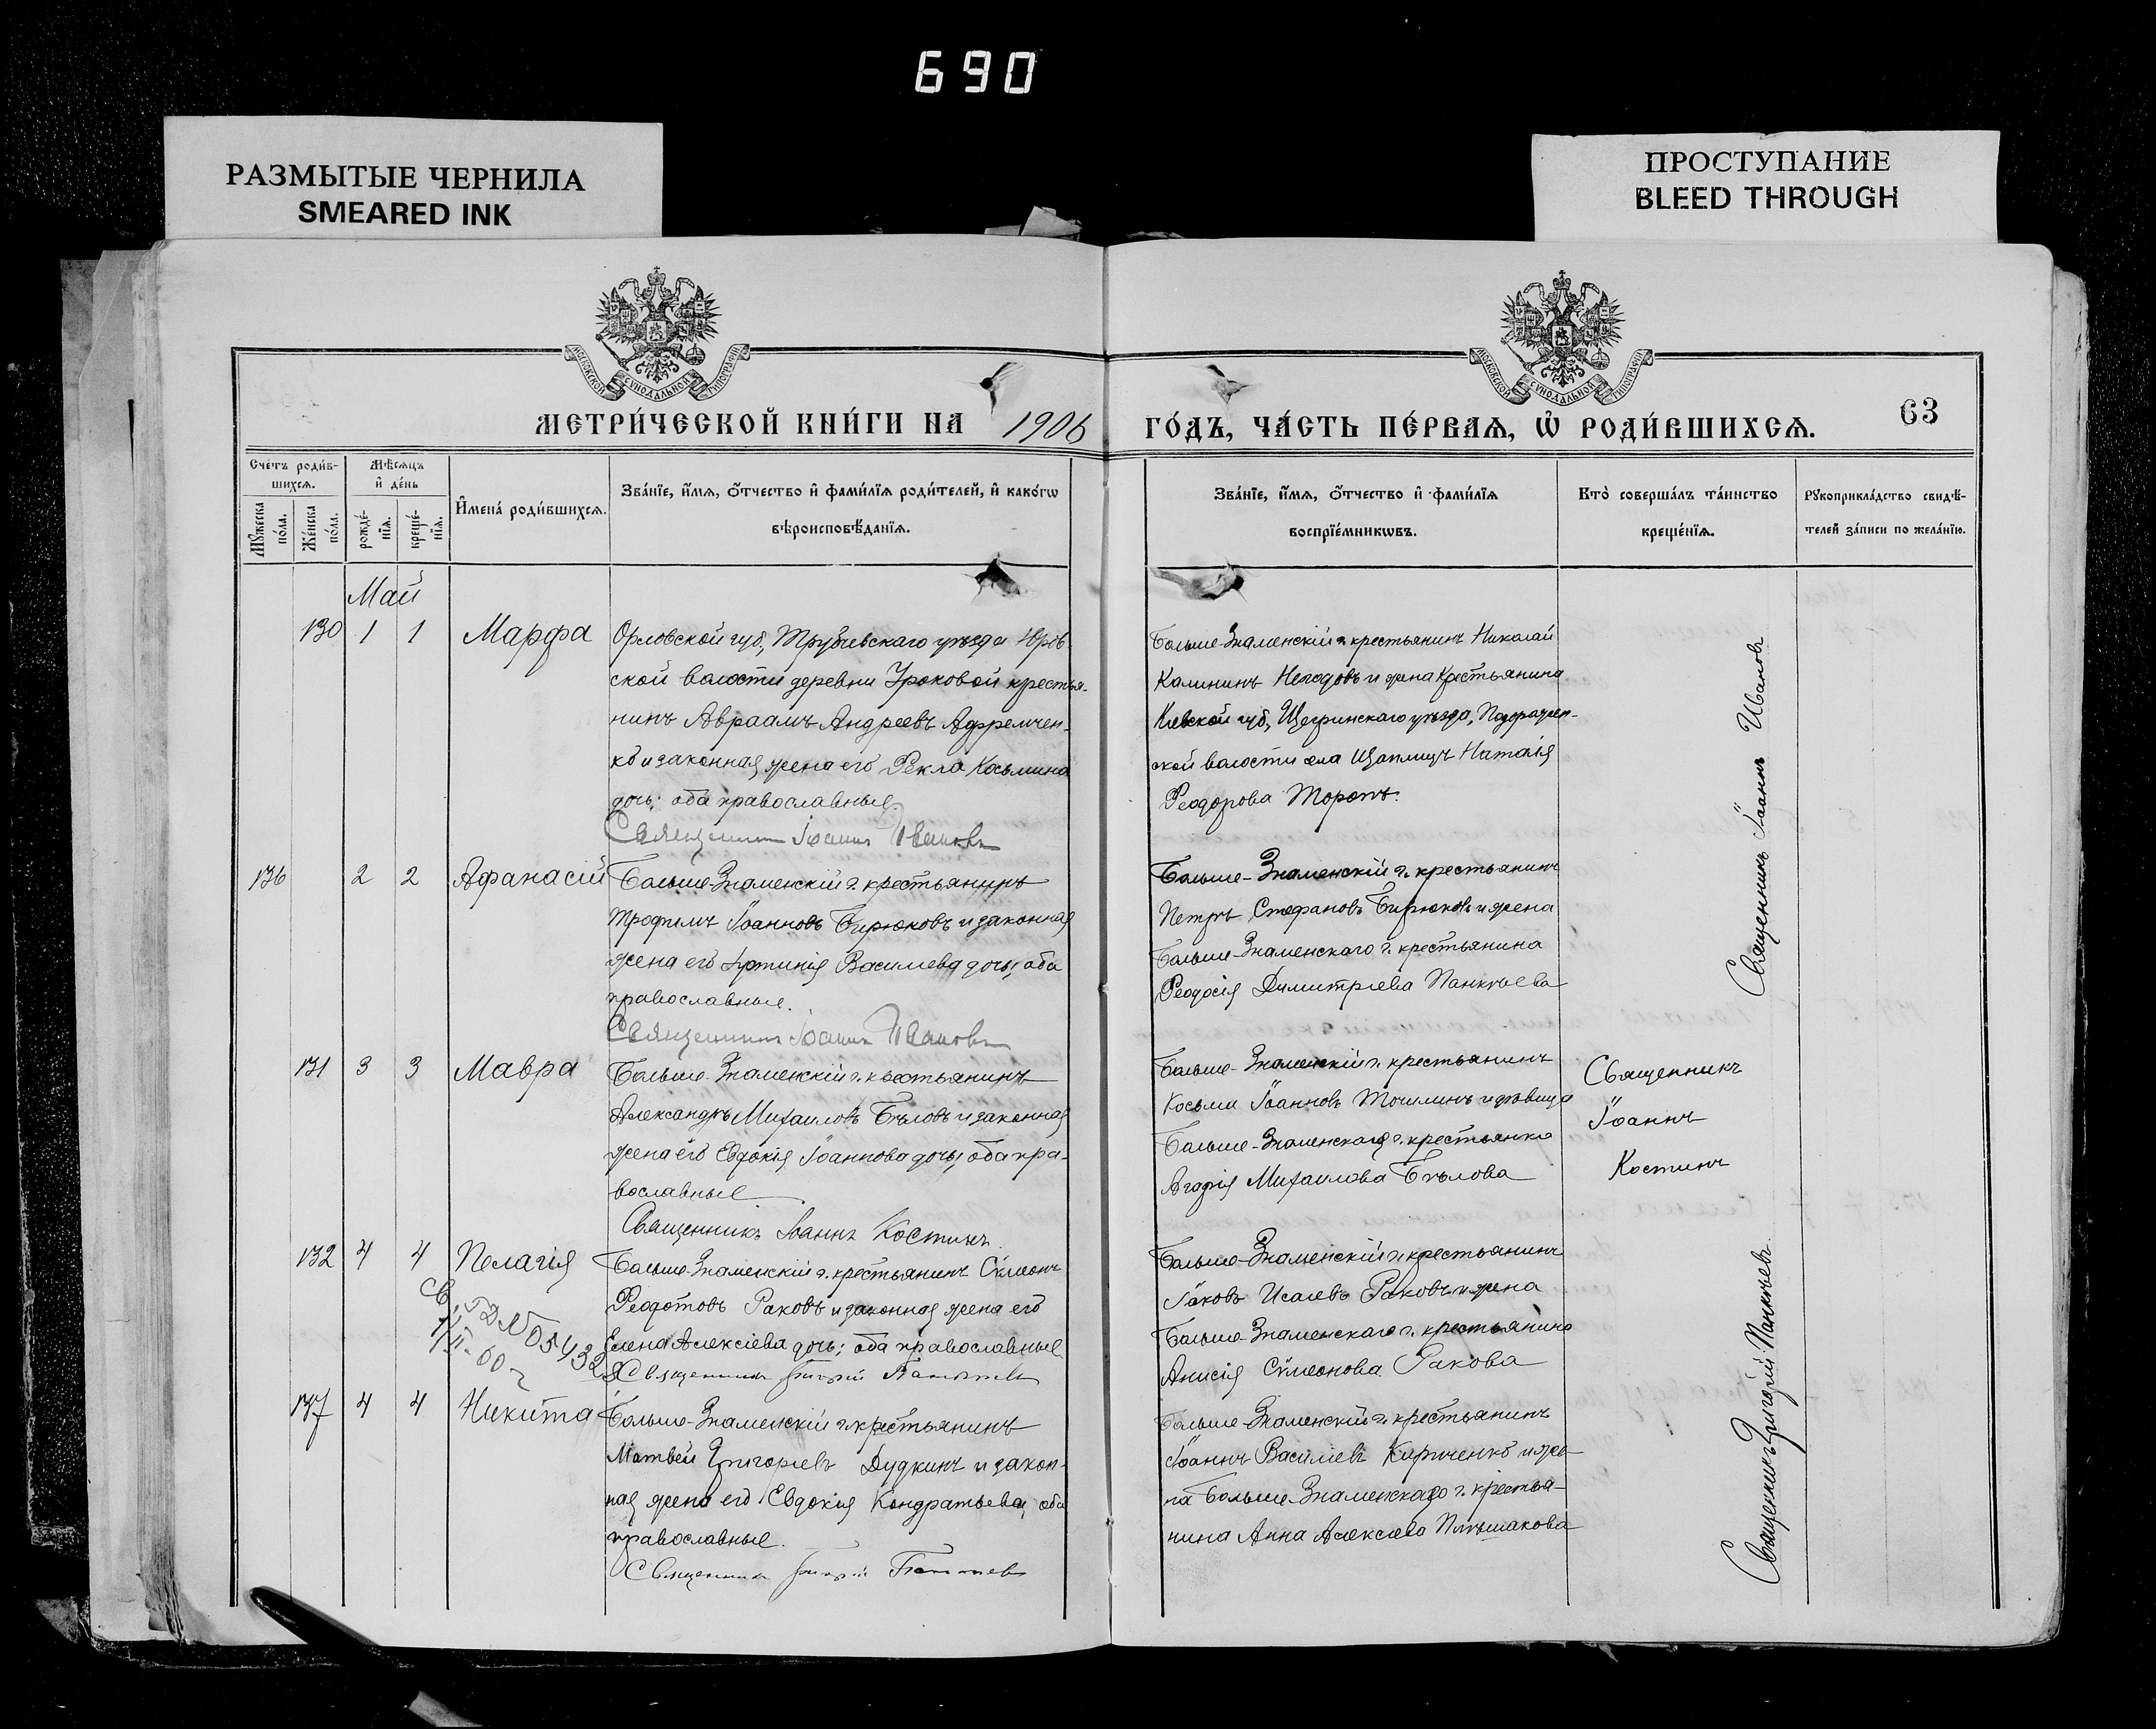 690
РАЗМЫТЫЕ ЧЕРНИЛА
SMEARED INK
ПРОСТУПАНИЕ
BLEED THROUGH
МОСКОВСКОЙ СѴНОДАЛЬНОЙ ТИПОГРАФІИ
МОСКОВСКОЙ СѴНОДАЛЬНОЙ ТИПОГРАФІИ
МЕТРИ́ЧЕСКОЙ КНИ́ГИ НА 1906
ГО́ДЪ, ЧА́СТЬ ПЕ́РВАЯ, Ѡ҆ РОДИ́ВШИХСЯ.
63
Сче́тъ роди́в-
шихся.
Мѣ́сяцъ
и҆ де́нь
Мꙋ́жеска
по́ла.
Же́нска
по́ла.
рожде́-
нїя.
креще́-
нїя.
И҆мена̀ роди́вшихся.
Зва́нїе, и҆́мя, ѻ҆́тчество и҆ фами́лїя роди́телей, и҆ како́гѡ
вѣроисповѣ́данїя.
Зва́нїе, и҆́мя, ѻ҆́тчество и҆ фами́лїя
воспрїе́мникѡвъ.
Кто̀ соверша́лъ та́инство
креще́нїя.
Рꙋкоприкла́дство свидѣ́-
телей за́писи по жела́нїю.
Май
130 1 1 Марфа
Орловской губ., Трубчевскаго уѣзда
ской волости деревни Уроковой крестья-
нинъ Авраамъ Андреевъ Афремчен-
ко и законная жена его Ѳекла Косьмина
дочь; оба православные.
Священникъ Іоаннъ Ивановъ
Больше-Знаменскій г. крестьянинъ Николай
Калининъ Негодовъ и жена крестьянина
Кіевской губ.,
ской волости села Наталія
Ѳеодорова Торопъ.
136 2 2 Афанасій
Больше-Знаменскій г. крестьянинъ
Трофимъ Іоанновъ Бирюковъ и законная
жена его Васильева дочь; оба
православные.
Священникъ Іоаннъ Ивановъ
Больше-Знаменскій г. крестьянинъ
Петръ Стефановъ Бирюковъ и жена
Больше-Знаменскаго г. крестьянина
Ѳеодосія Димитріева Панкѣева
Священникъ Іоаннъ Ивановъ
131 3 3 Мавра
Больше-Знаменскій г. крестьянинъ
Александръ Михаиловъ Бѣловъ и законная
жена его Евдокія Іоаннова дочь; оба пра-
вославные
Священникъ Іоаннъ Костинъ
Больше-Знаменскій г. крестьянинъ
Косьма Іоанновъ Точилинъ и дѣвица
Больше-Знаменскаго г. крестьянка
Агафія Михаилова Бѣлова
Священникъ
Іоаннъ
Костинъ
132 4 4 Пелагія
Больше-Знаменскій г. крестьянинъ Сѵмеонъ
Ѳеодотовъ Раковъ и законная жена его
Елена Алексіева дочь; оба православные
Священникъ Григорій Панкѣевъ
Больше-Знаменскій г. крестьянинъ
Іаковъ Исаевъ Раковъ и жена
Больше-Знаменскаго г. крестьянина
Анисія Сѵмеонова Ракова
137 4 4 Никита
Больше-Знаменскій г. крестьянинъ
Матвей Григоріевъ Дудкинъ и закон-
ная жена его Евдокія Кондратьева; оба
православные.
Священникъ Григорій Панкѣевъ
Больше-Знаменскій г. крестьянинъ
Іоаннъ Василіевъ Кириченко и же-
на Больше-Знаменскаго г. крестья-
нина Анна Алексіева Плѣшакова
Священникъ Григорій Панкѣевъ